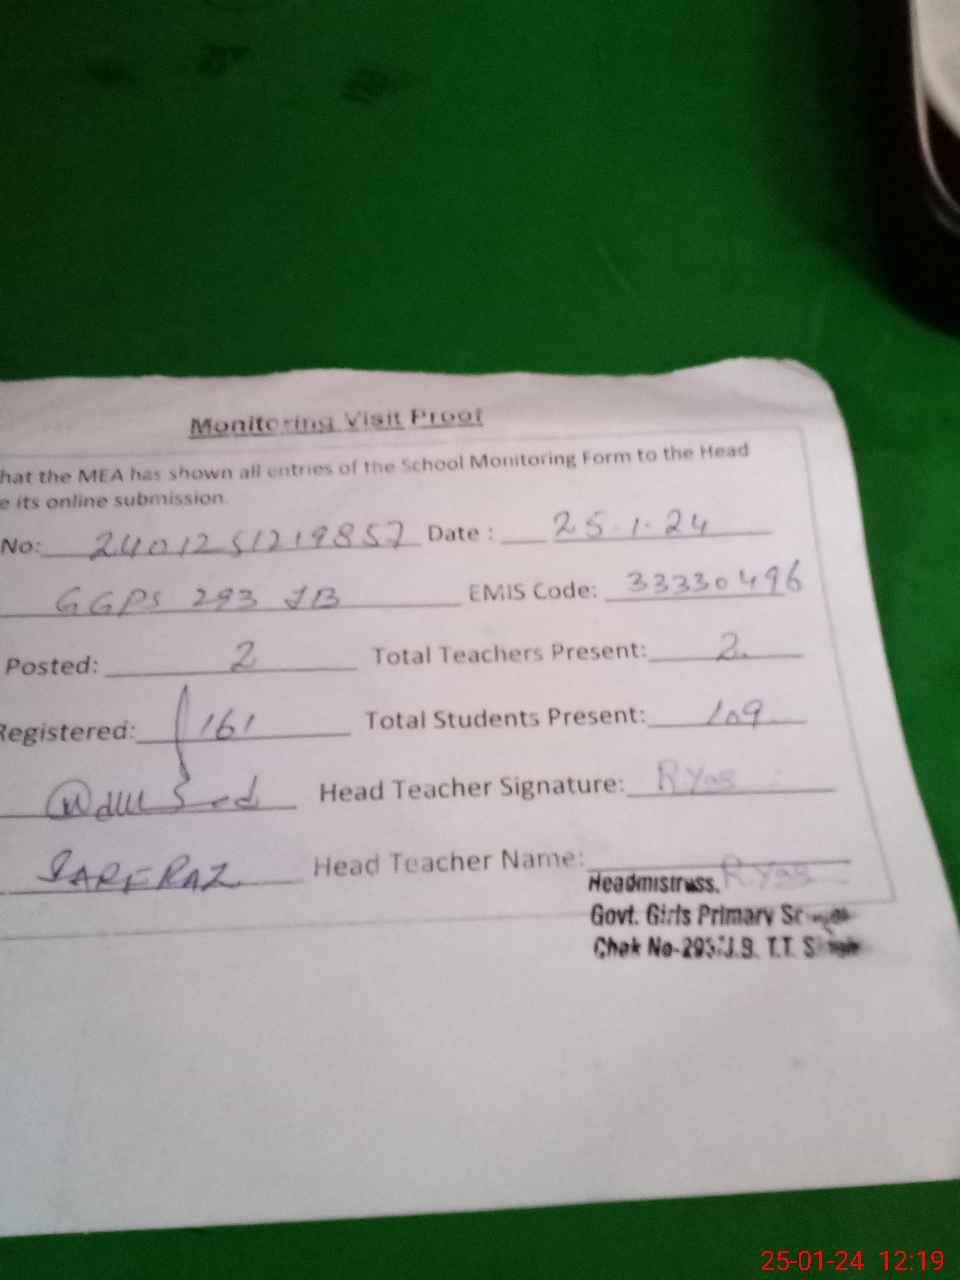 Monitoring Visit Proof
hat the MEA has shown all entries of the School Monitoring Form to the Head
e its online submission.
No: 2401251219857 Date : 25.1.24
GGPS 293 JB EMIS Code: 33330496
Posted: 2 Total Teachers Present: 2.
Registered: 161 Total Students Present: 109
Head Teacher Signature: RYas
SARFRAZ Head Teacher Name: RYas
Headmistress.
Govt. Girls Primary
Chak No-293/J.B. T.T. S
25-01-24 12:19